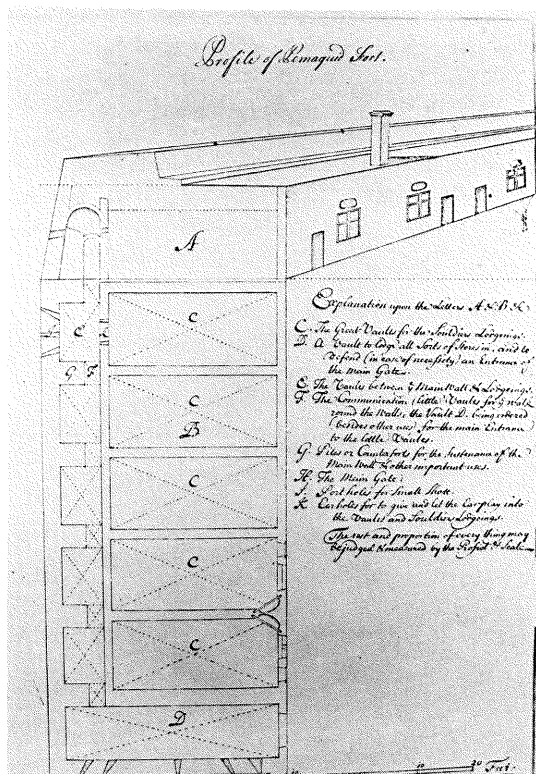 Profile of Pemaquid Fort.
A
C
E
C
G F
B
C
C
C
D
Explanation upon the Letters A & B &c
C. The Great Vaults for the Souldiers Lodgeings.
D. A Vault to lodge all Sorts of Stores in, and to
defend (in case of necessity) an Entrance of
the Main Gate.
E. The Vaults between ye Main Wall & Lodgeings.
F. The Communication (little) Vaults for ye Walk
round the Walls, the Vault D. being
(besides other uses) for the main Entrance
to the little Vaults.
G. Piles or Counterforts for the Sustenance of the
Main Wall & other important uses.
H. The Main Gate.
I. Port holes for Small Shott.
K. Earholes for to give and let the Ear play into
the Vaults and Souldiers Lodgeings.
The rest and proportion of every thing may
be judged & measured by the Profiel & Scale
10
10
20 Feet